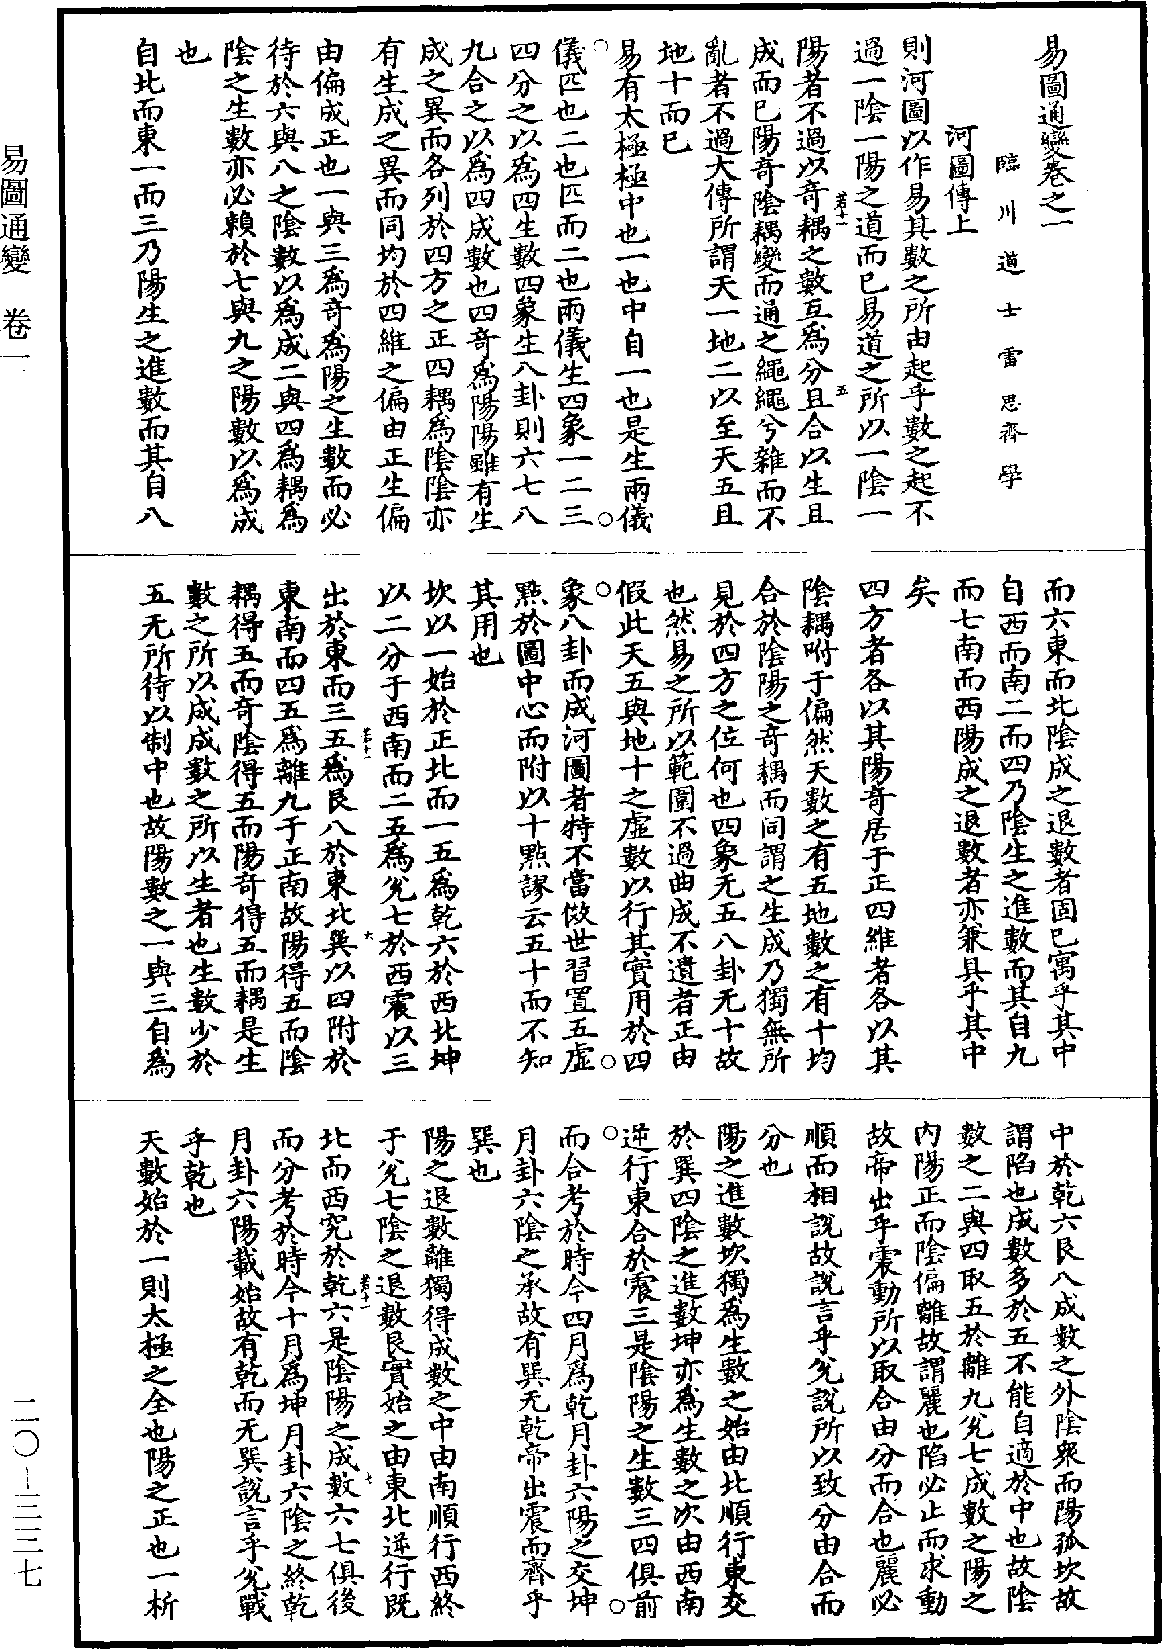 易圖通變卷之一
臨川道士雷思齊學
河圖傳上
則河圖以作易其數之所由起乎數之起不
過一陰一陽之道而已易道之所以一陰一
陽者不過以奇耦之數互為分且合以生且
成而已陽奇陰耦變而通之繩繩兮雜而不
亂者不過大傳所謂天一地二以至天五且
地十而已
易有太極極中也一也中自一也是生兩儀
儀匹也二也匹而二也兩儀生四象一二三
四分之以為四生數四象生八卦則六七八
九合之以為四成數也四奇為陽陽雖有生
成之異而各列於四方之正四耦為陰陰亦
有生成之異而同均於四維之偏由正生偏
由偏成正也一與三為奇為陽之生數而必
待於六與八之陰數以為成二與四為耦為
陰之生數亦必賴於七與九之陽數以為成
也
自北而東一而三乃陽生之進數而其自八
而六東而北陰成之退數者固已寓乎其中
自西而南二而四乃陰生之進數而其自九
而七南而西陽成之退數者亦兼具乎其中
矣
四方者各以其陽奇居于正四維者各以其
陰耦附于偏然天數之有五地數之有十均
合於陰陽之奇耦而同謂之生成乃獨無所
見於四方之位何也四象无五八卦无十故
也然易之所以範圍不過曲成不遺者正由
假此天五與地十之虛數以行其實用於四
象八卦而成河圖者特不當倣世習置五虛
點於圖中心而附以十點謬云五十而不知
其用也
坎以一始於正北而一五為乾六於西北坤
以二分于西南而二五為兌七於西震以三
出於東而三五為艮八於東北巽以四附於
東南而四五為離九于正南故陽得五而陰
耦得五而奇陰得五而陽奇得五而耦是生
數之所以成成數之所以生者也生數少於
五无所待以制中也故陽數之一與三自為
中於乾六艮八成數之外陰眾而陽孤坎故
謂陷也成數多於五不能自適於中也故陰
數之二與四取五於離九兌七成數之陽之
內陽正而陰偏離故謂麗也陷必止而求動
故帝出乎震動所以取合由分而合也麗必
順而相說故說言乎兌說所以致分由合而
分也
陽之進數坎獨為生數之始由北順行東交
於巽四陰之進數坤亦為生數之次由西南
逆行東合於震三是陰陽之生數三四俱前
而合考於時今四月為乾月卦六陽之交坤
月卦六陰之承故有巽无乾帝出震而齊乎
巽也
陽之退數離獨得成數之中由南順行西終
于兌七陰之退數艮實始之由東北逆行既
北而西究於乾六是陰陽之成數六七俱後
而分考於時今十月為坤月卦六陰之終乾
月卦六陽載始故有乾而无巽說言乎兌戰
乎乾也
天數始於一則太極之全也陽之正也一析
易圖通變 卷一
二〇-三三七